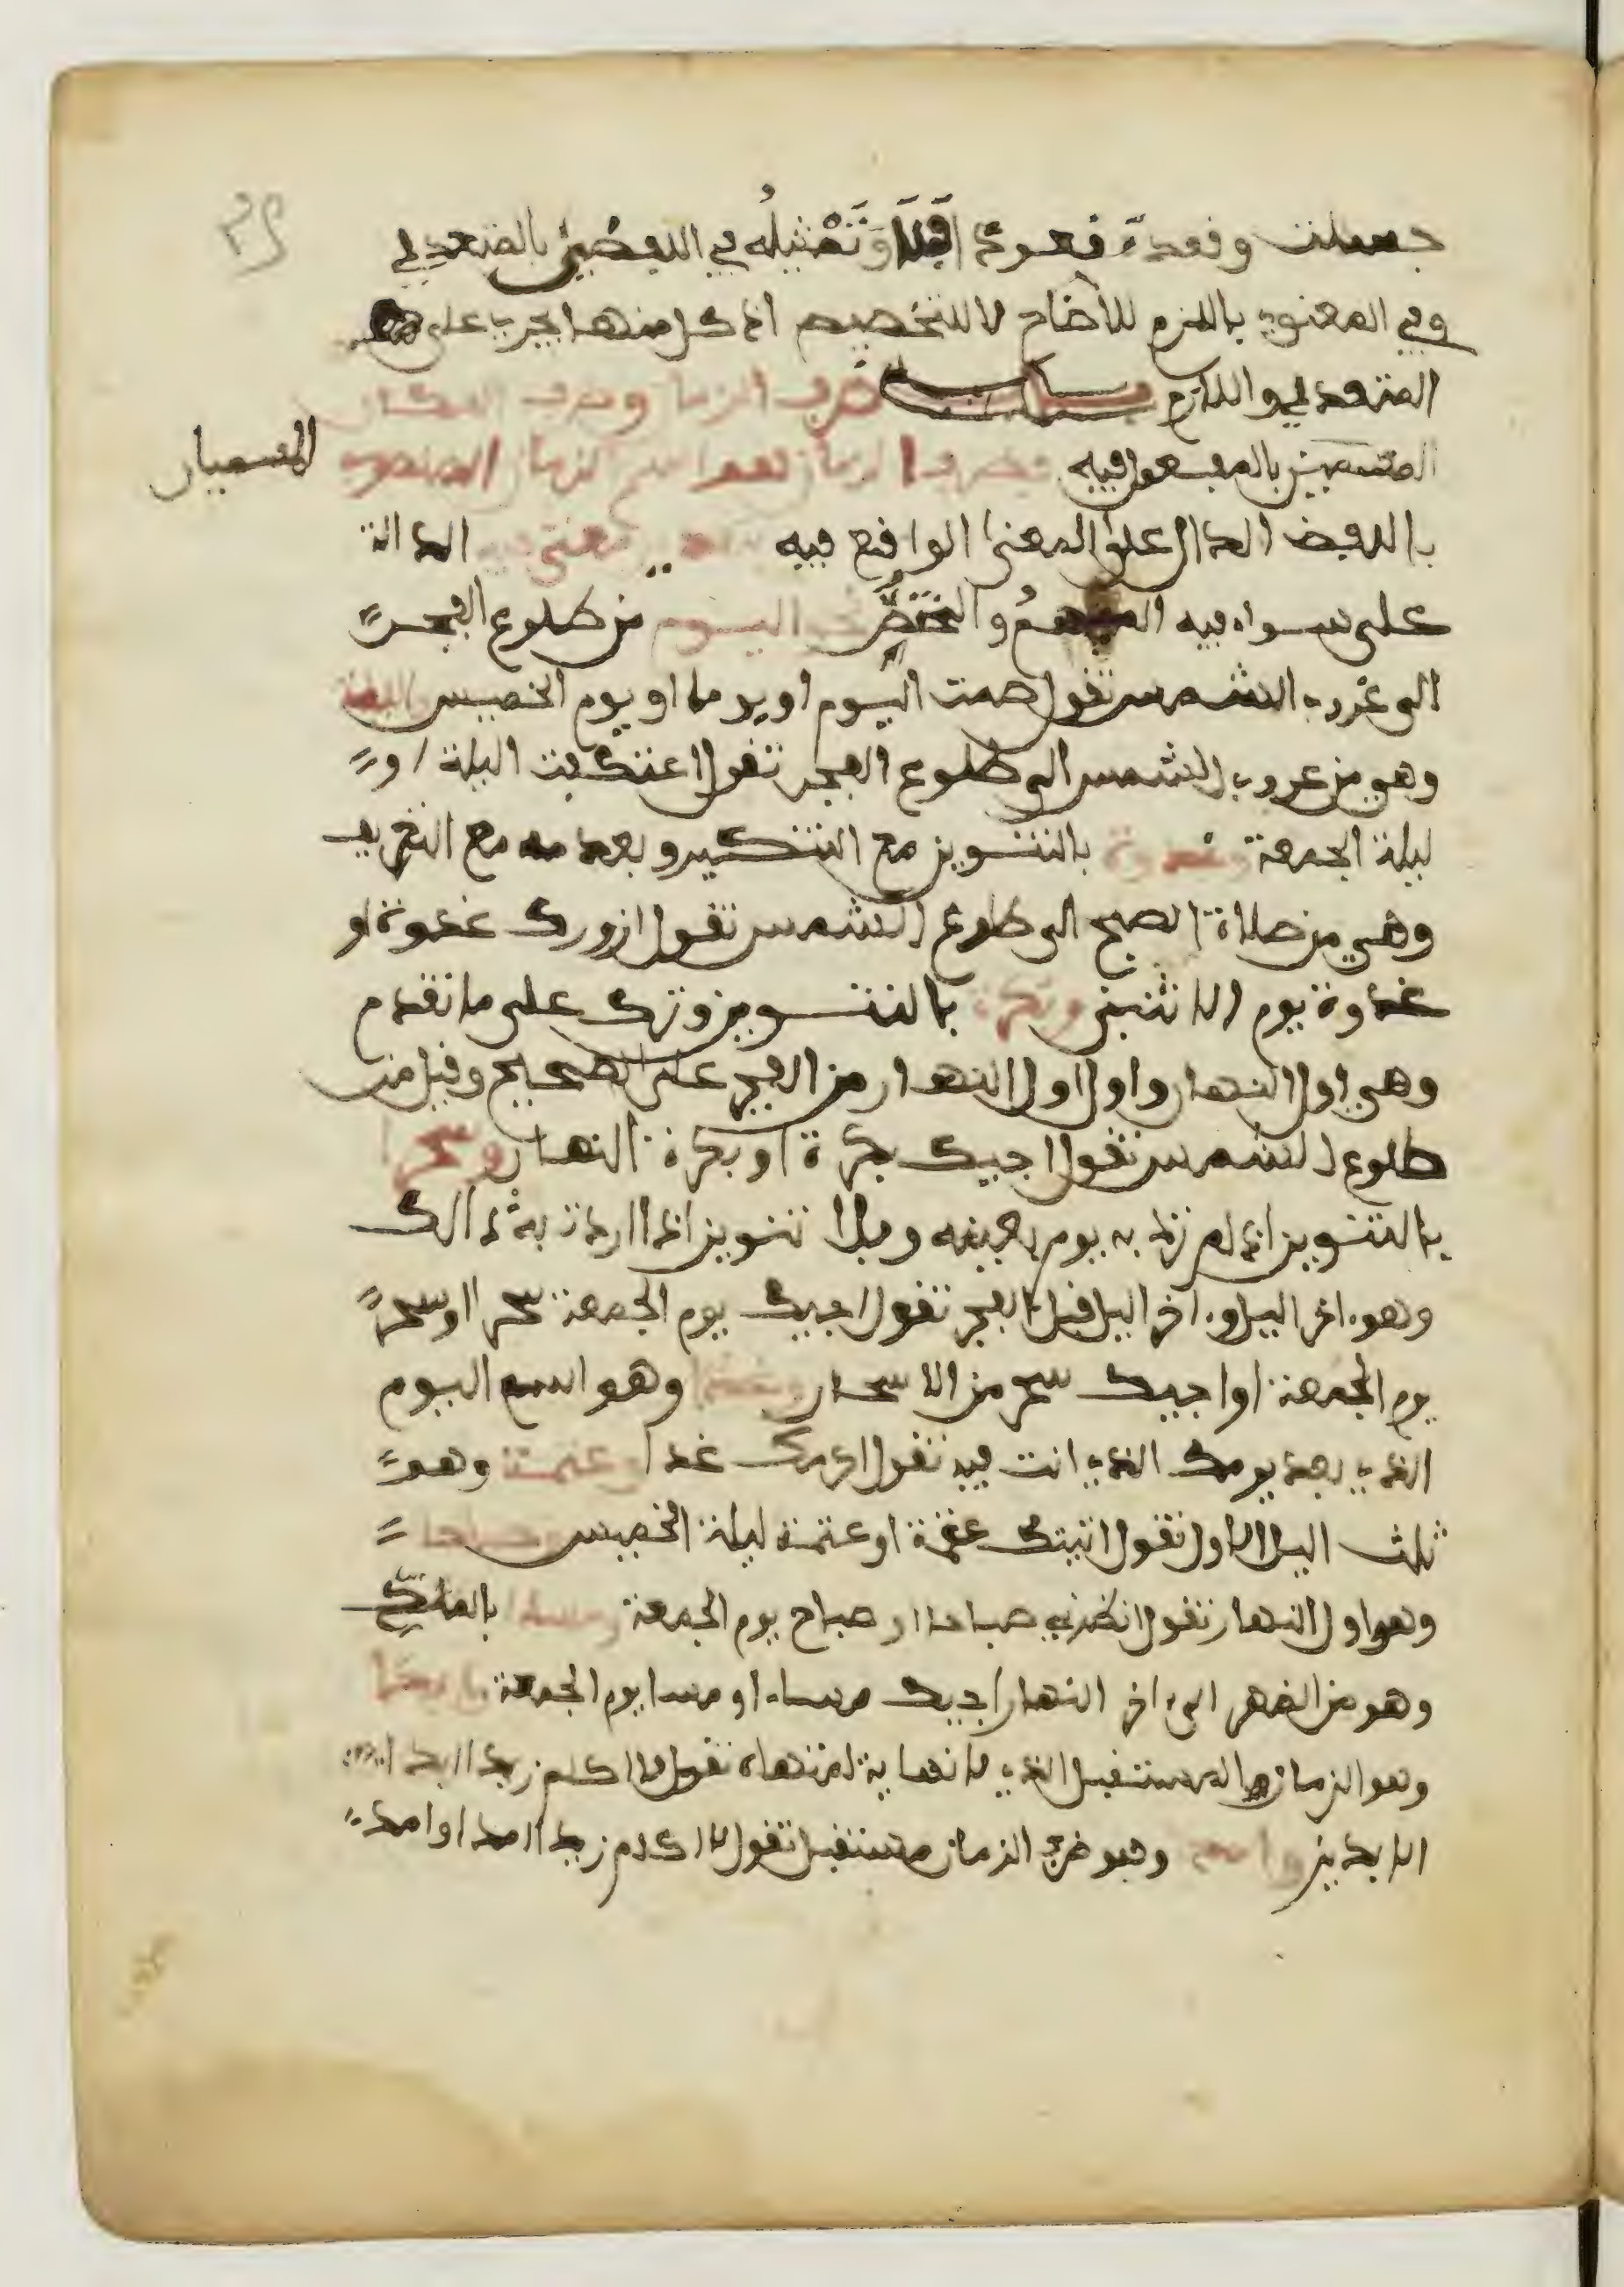 جلست وقعدت قعودا وتمثيله في اللفظي بالمتعدي
وفي المعنوي باللزم للايضاح لا للتخصيص اذ كل منهما يجري على
المتعدي واللازم باب ظرف الزمان وظرف المكان
المسميين بالمفعول فيه فظرف الزمان هو اسم الزمان المنصوب
المسميان
باللفظ الدال على المعنى الواقع فيه بتقدير معنى في الدالة
على سواء فيه المبهم والمختص نحو اليوم من طلوع الفجر
الى غروب الشمس تقول صمت اليوم او يوما او يوم الخميس والليلة
وهو من غروب الشمس الى طلوع الفجر تقول اعتكفت اليلة او
ليلة الجمعة وغدوة بالتنوين مع التنكير وبعدمه مع التعريف
وهي من صلاة الصبح الى طلوع الشمس تقول ازورك غدوة او
غدوة يوم الاثنين وبكرة بالتنوين وتركه على ما تقدم
وهي اول النهار واول اول النهار من الفجر على الصحيح وقيل من
طلوع الشمس تقول اجيك بكرة او بكرة النهار وسحرا
بالتنوين اذا لم ترد به يوم بعينه وبلا تنوين اذا اردت به ذالك
وهو ءاخر اليل وءاخر اليل قبل الفجر تقول اجيك يوم الجمعة سحرا او سحر
يوم الجمعة او اجيك سحر من الاسحار وغدا وهو اسم اليوم
الذي بعد يومك الذي انت فيه تقول اكرمك غدا وعتمة وهو
ثلث اليل الاول تقول اتيتك عتمة او عتمة ليلة الخميس وصباحا
وهو اول النهار تقول انتظرني صباحا او صباح يوم الجمعة ومساء بالمد
وهو من الظهر الى ءاخر النهار اجيك مساء او مسا يوم الجمعة وابدا
وهو الزمان المستقبل الذي لا نهاية لمنتهاه تقول لا اكلم زيدا ابدا او ابد
الابدين وامدا وهو ظرف الزمان مستقبل تقول لا اكلم زيدا امدا او امد